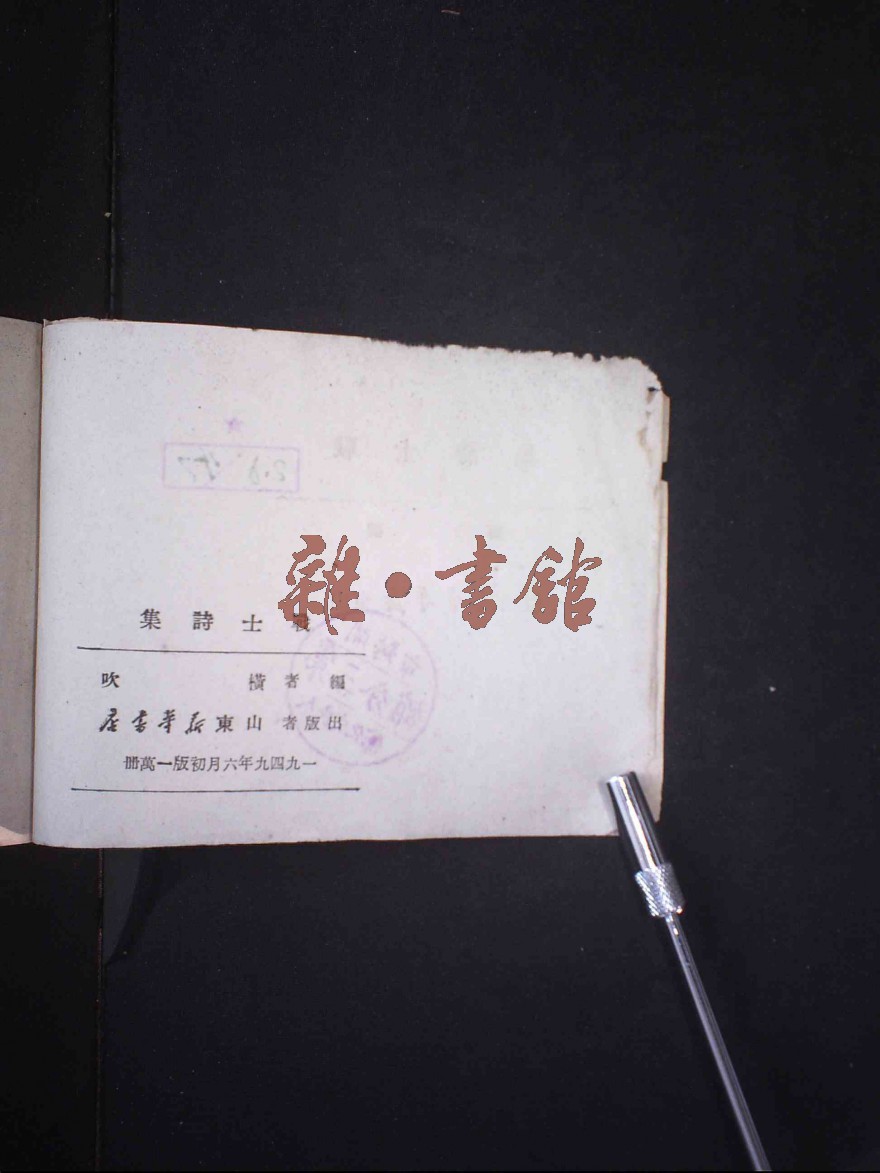 雜•書館
戰士詩集
編者 橫吹
出版者 山東新華書店
一九四九年六月初版一萬冊